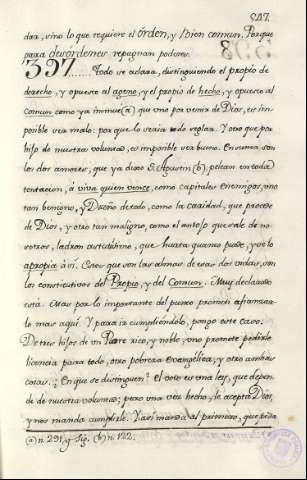 247.
dar, sino lo que requiere el órden, y bien comun. Porque
para desordenes repugnan poderes.
397..... Todo se aclara, distinguiendo el propio de
derecho, y opuesto al ageno, y el propio de hecho, y opuesto al
comun como ya insinué (a) que uno por venir de Dios, es im-
posible sea malo: por que lo sería todo reglar. Y otro que por
hijo de nuestra voluntad, es imposible sea bueno. En suma son
los dos amores, que ya dixo S. Agustin (b) pelean en toda
tentacion, á viva quien vence, como capitales enemigos, uno
tan benigno, y Dueño de todo, como la caridad, que procede
de Dios, y otro tan maligno, como el antojo que sale de no-
sotros, ladron astutísimo, que hurta quanto puede, y se lo
apropia á sí. Creo que son las almas de esas dos vidas, son
los constitutivos del Propio, y del Comun. Muy declarado
está. Mas por lo importante del punto prometí afianzar-
lo mas aquí. Y para ir cumpliéndolo, pongo este caso.
De tres hijos de un Padre rico, y noble, uno promete pedirle
licencia para todo, otro pobreza Evangélica, y otro ambas
cosas. ¿En que se distinguen? El voto es una ley, que depen-
de de nuestra voluntad; pero una vez hecho, le acepta Dios,
y nos manda cumplirle. Y así manda al primero, que pida
(a) n. 291. y sig. (b) n. 122.